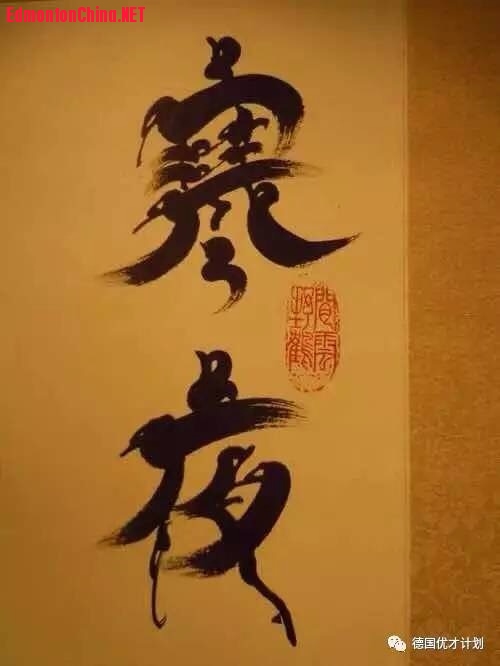 EdmontonChina.NET
寒
夜
閒雲
野鶴
德国优才计划